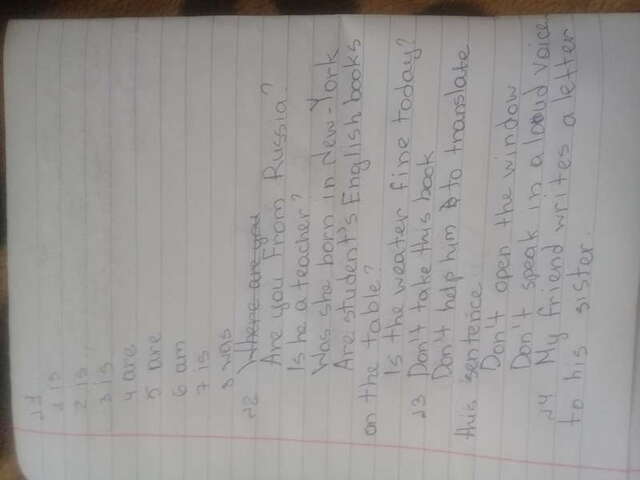 №1
1 is
2 is
3 is
4 are
5 are
6 am
7 is
8 was
№2 Where are you
Are you from Russia?
Is he a teacher?
Was she born in New-York
Are student's English books
on the table?
Is the weater fine today?
№3 Don't take this book
Don't help him to translate
this sentence.
Don't open the window
Don't speak in a loud voice
№4 My friend writes a letter
to his sister.